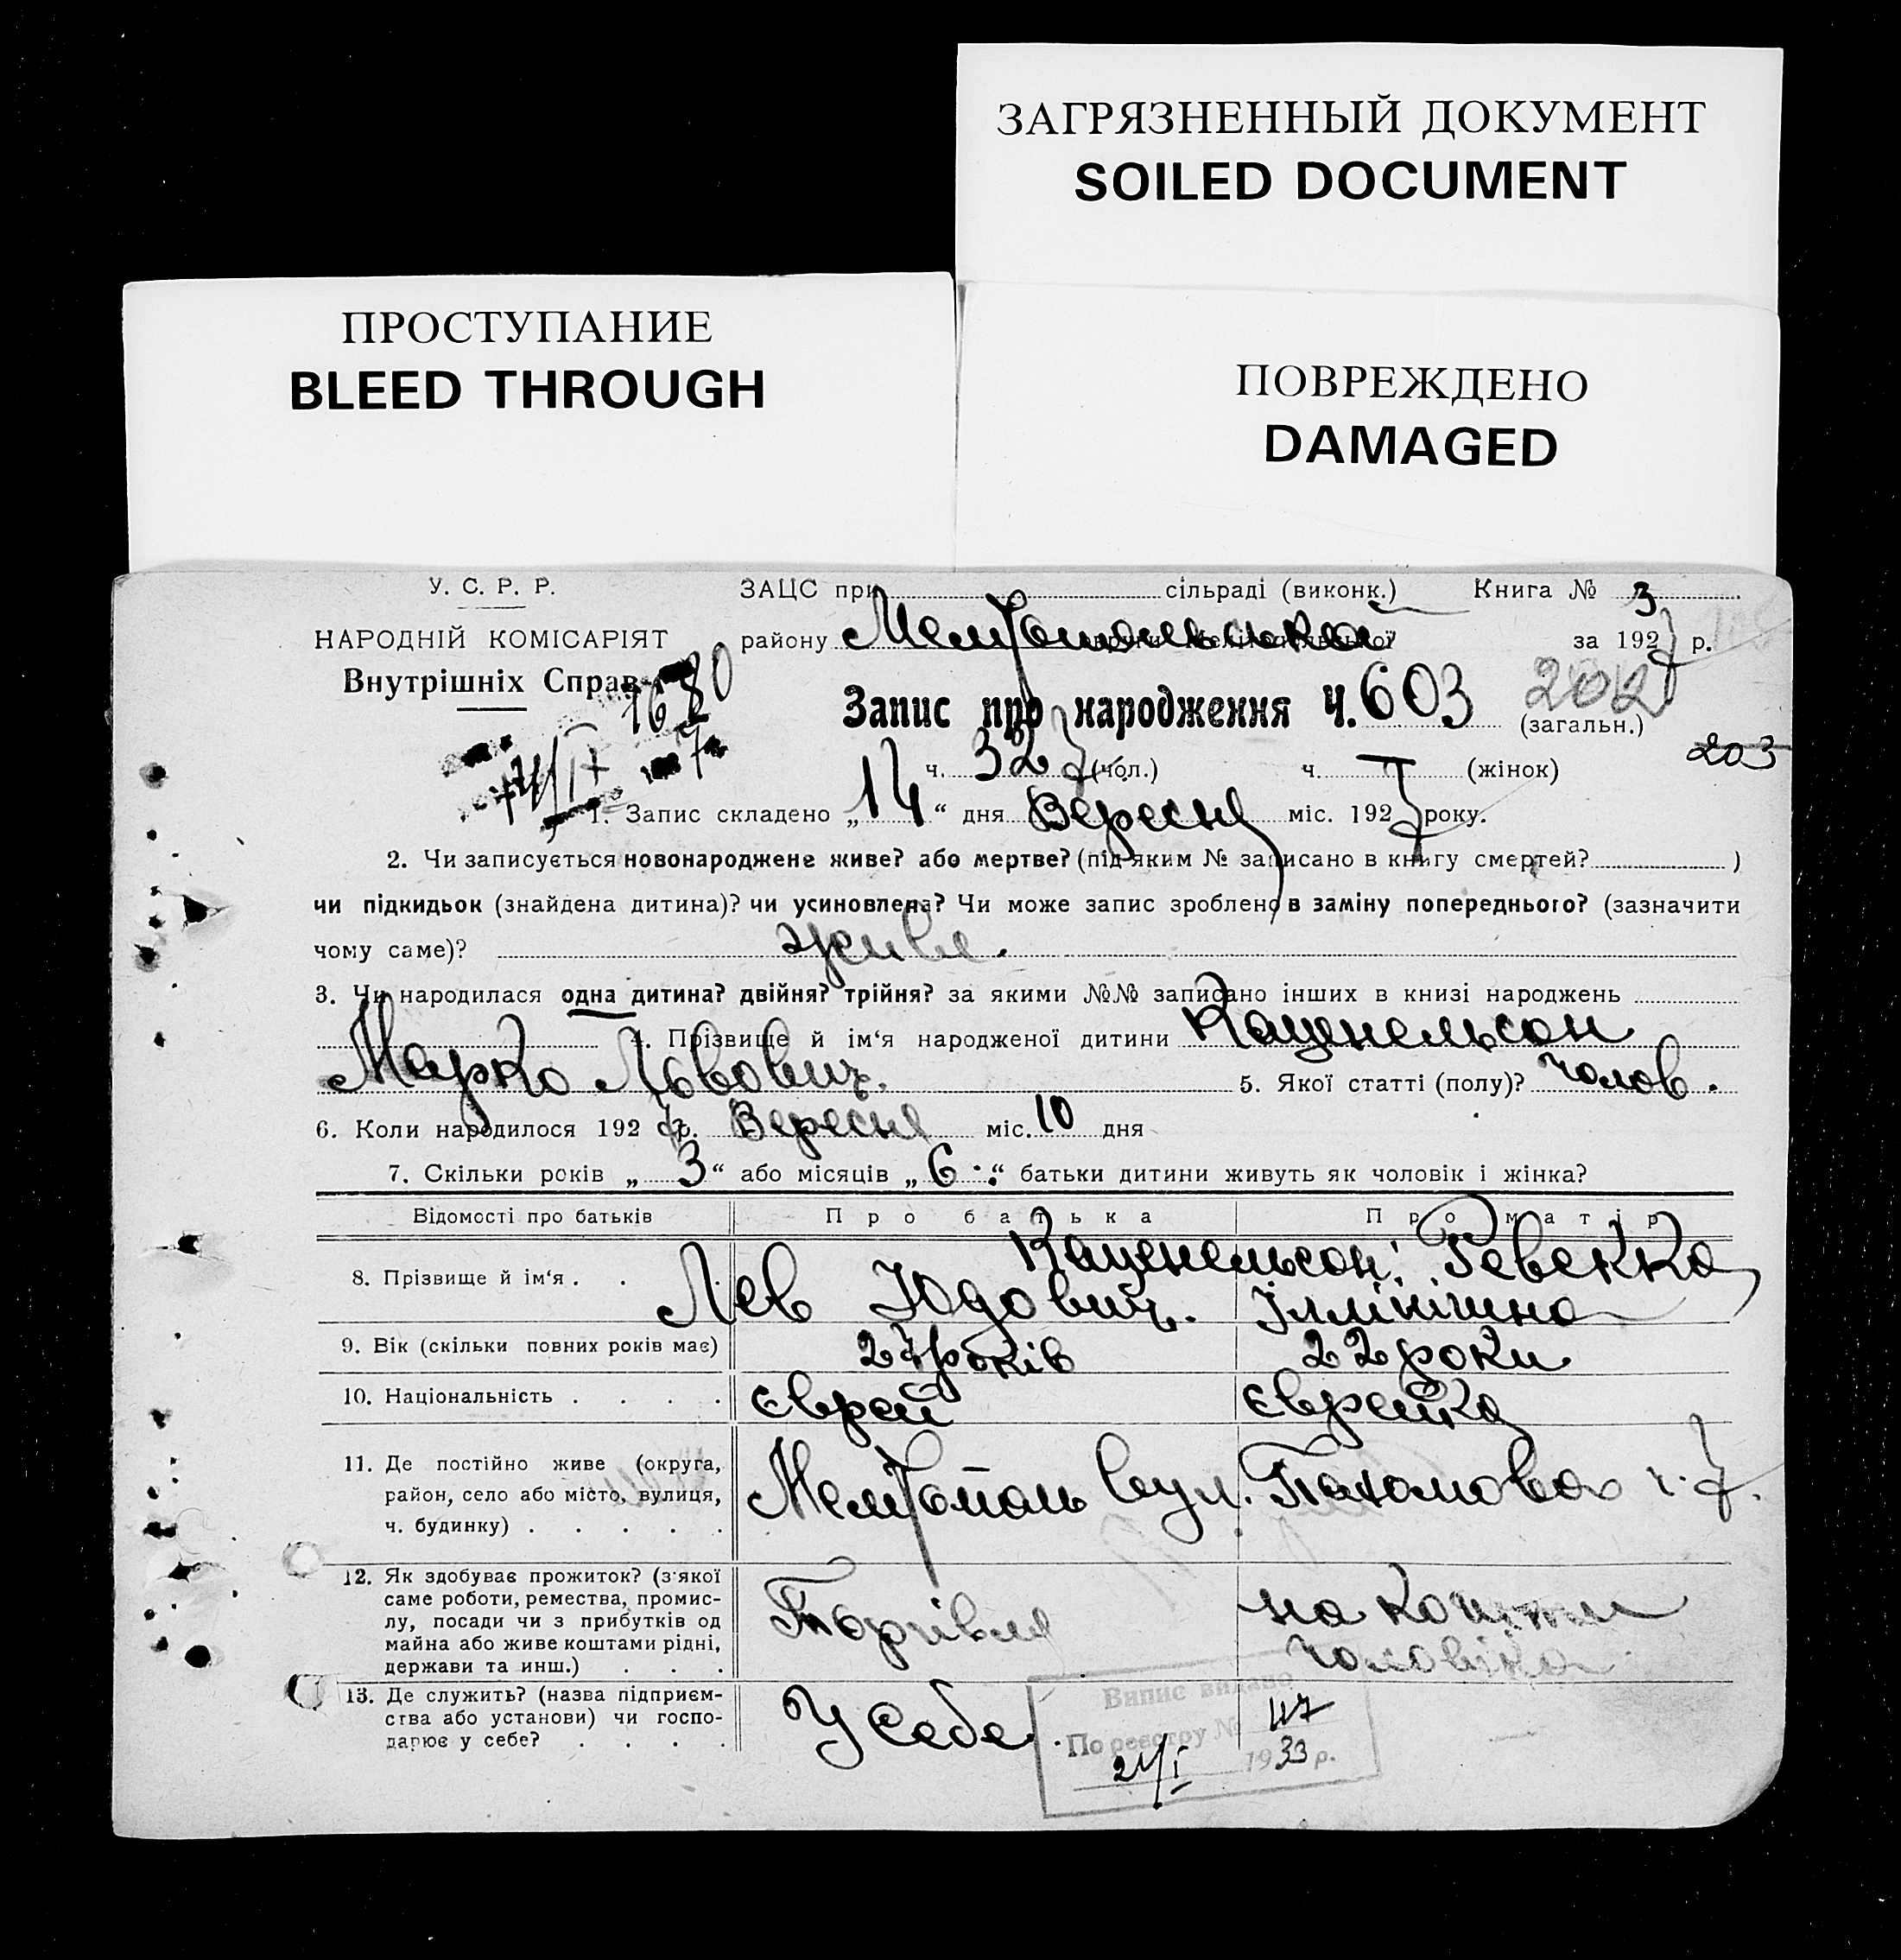 ЗАГРЯЗНЕННЫЙ ДОКУМЕНТ
SOILED DOCUMENT
ПРОСТУПАНИЕ
BLEED THROUGH
ПОВРЕЖДЕНО
DAMAGED
У. С. Р. Р.
НАРОДНІЙ КОМІСАРІЯТ
Внутрішніх Справ
ЗАЦС при сільраді (виконк.) Книга № 3
району Мелітопольська округи Мелітопольської за 1927 р.
1680
Запис про народження Ч. 603 202 (загальн.)
203
ч. 327 (чол.) ч. (жінок)
1. Запис складено „14“ дня Вересня міс. 1927 року.
2. Чи записується новонароджене живе? або мертве? (під яким № записано в книгу смертей? )
чи підкидьок (знайдена дитина)? чи усиновлена? Чи може запис зроблено в заміну попереднього? (зазначити
чому саме)? живе.
3. Чи народилася одна дитина? двійня? трійня? за якими №№ записано інших в книзі народжень
4. Прізвище й ім‘я народженої дитини Каценельсон
Марко Львович. 5. Якої статті (полу)? чолов.
6. Коли народилося 1927 р. Вересня міс. 10 дня
7. Скільки років „3“ або місяців „6“ батьки дитини живуть як чоловік і жінка?
Відомості про батьків Про батька Про матір
8. Прізвище й ім‘я . . . Каценельсон Ревекка
Лев Юдович. Іллінішна
9. Вік (скільки повних років має) 27 років 22 роки
10. Національність . . . . єврей єврейка
11. Де постійно живе (округа,
район, село або місто, вулиця,
ч. будинку) . . . . .
Мелітополь вул. Пахомова ч. 7.
12. Як здобуває прожиток? (з‘якої
саме роботи, ремества, промис-
лу, посади чи з прибутків од
майна або живе коштами рідні,
держави та инш.) . . .
Торгівля на кошти
чоловіка
13. Де служить? (назва підприєм-
ства або установи) чи госпо-
дарює у себе? . . . .
У себе.
Випис видано
По реєстру № 47
21/I 1933 р.